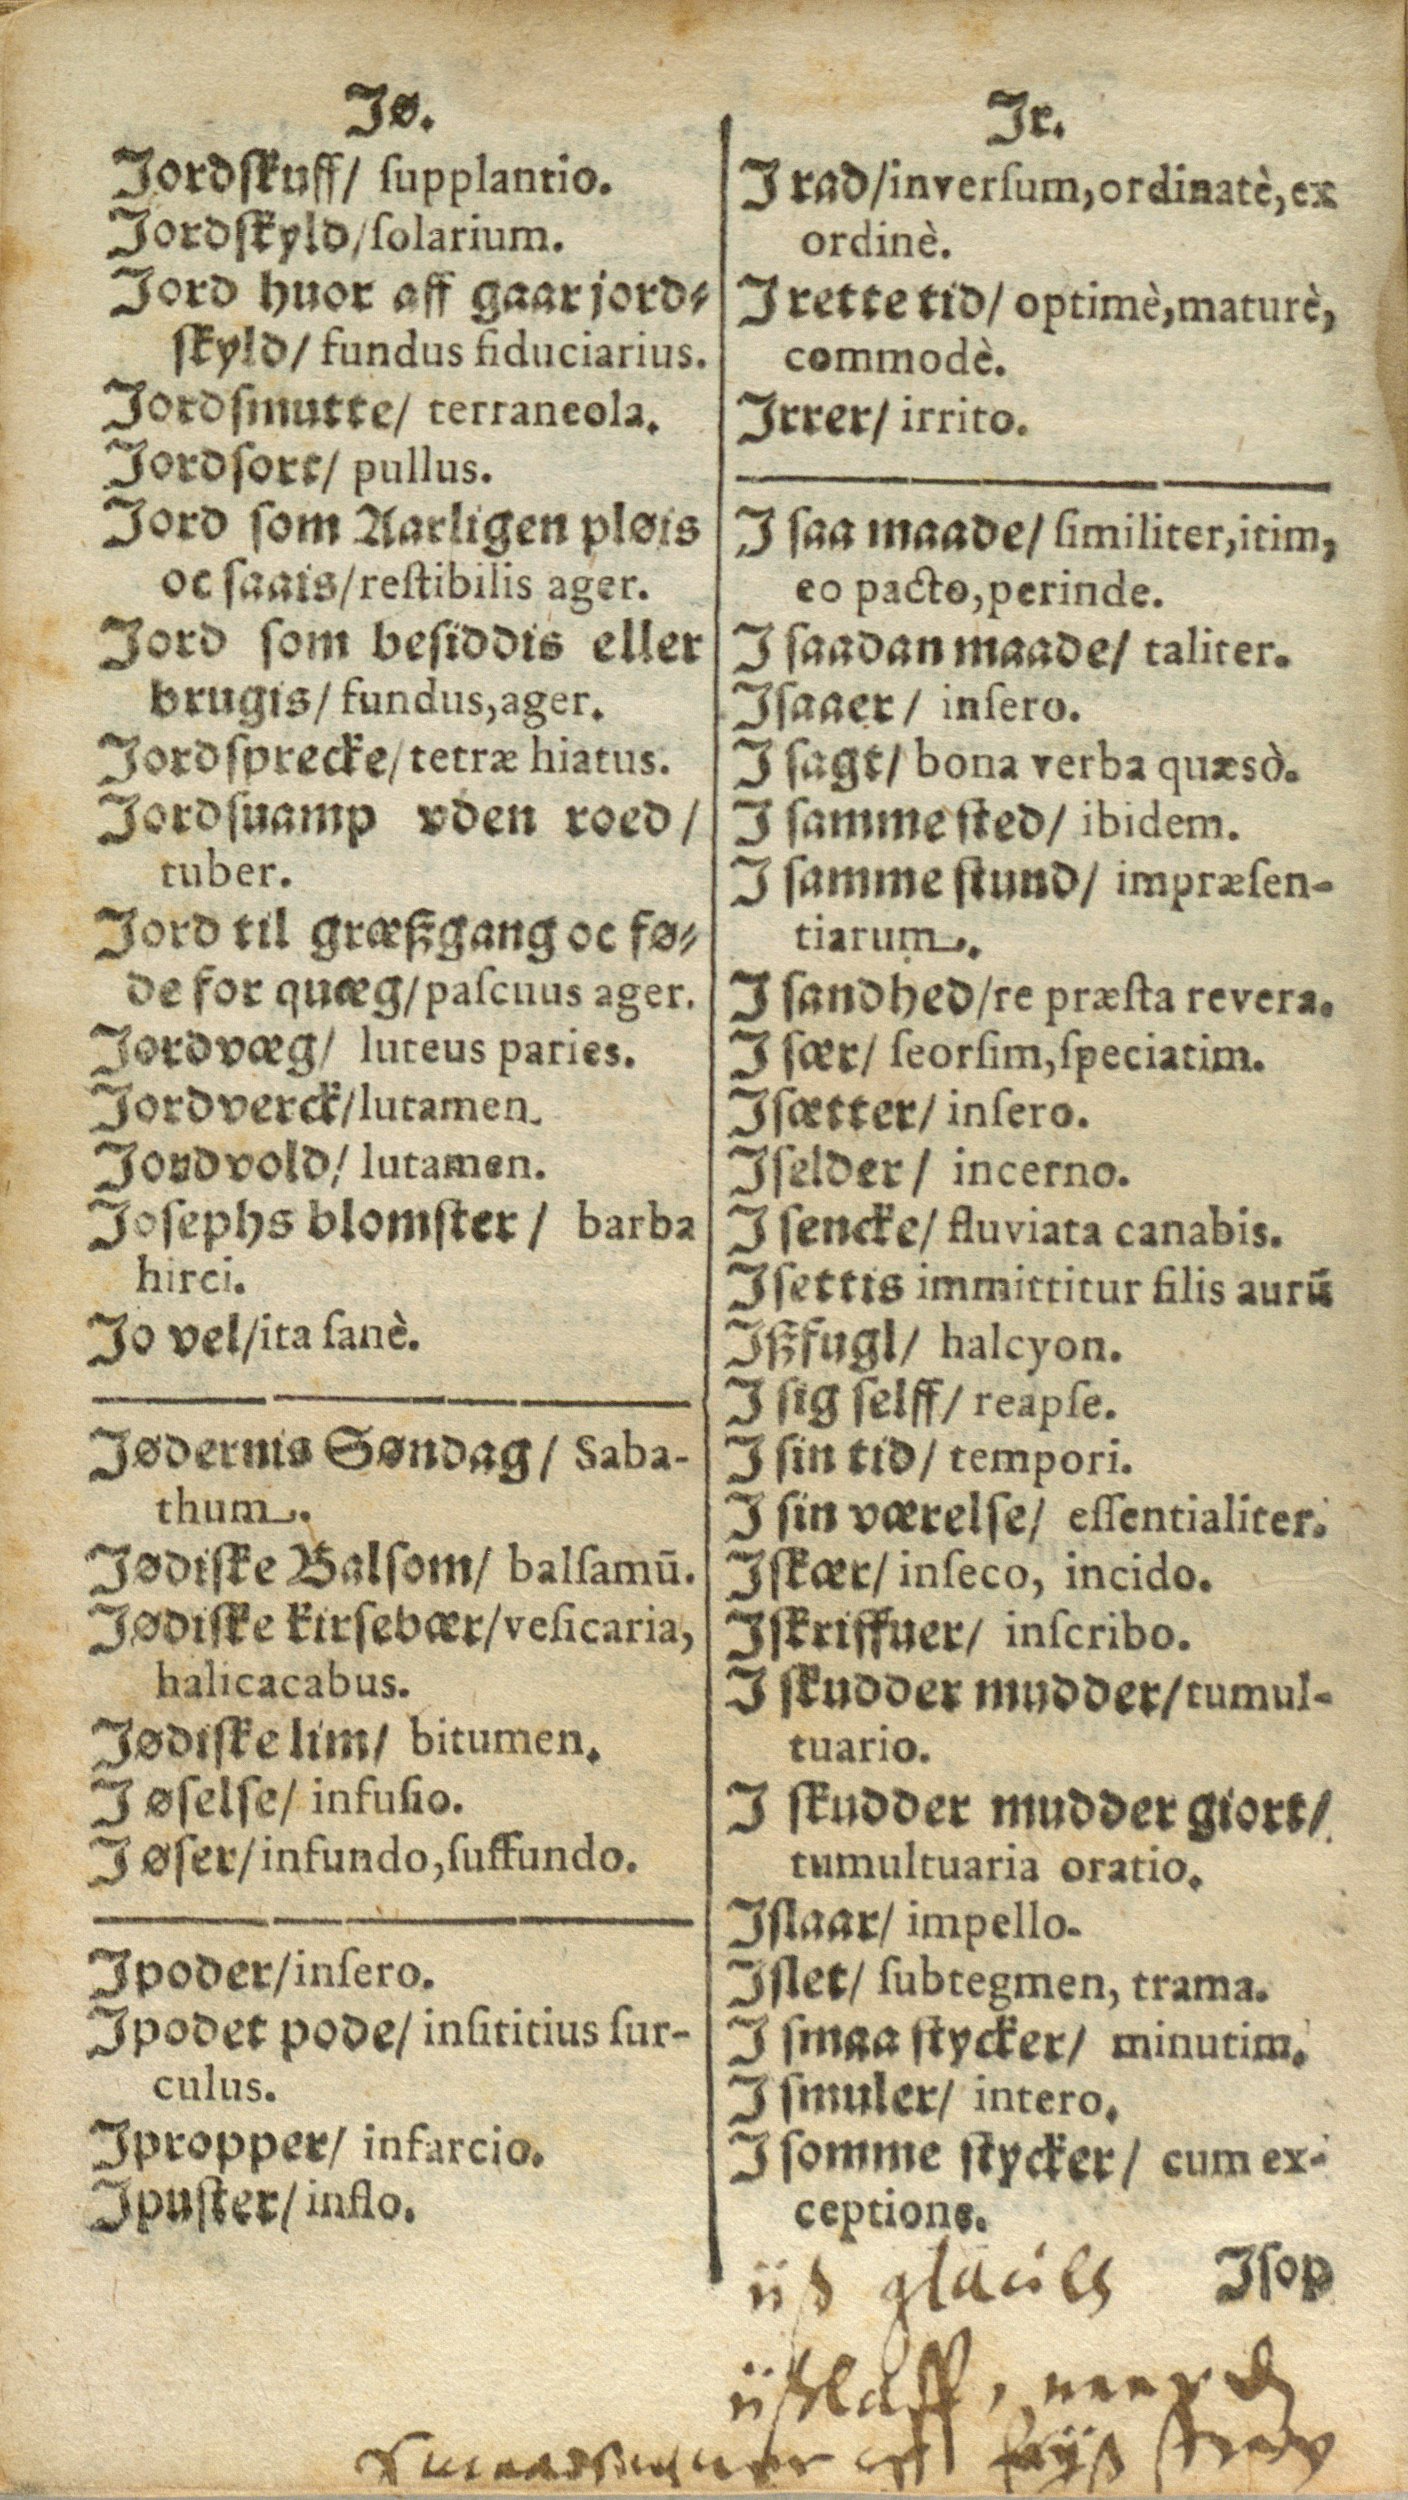 Jø.
Jordſkuff/ ſupplantio.
Jordſkyld/ſolarium.
Jord huor aff gaar jord⸗
ſkyld/ fundus fiduciarius.
Jordſmutte/ terraneola.
Jordſort/ pullus.
Jord ſom Aarligen pløis
oc ſaais/reſtibilis ager.
Jord ſom beſiddis eller
brugis/ fundus,ager.
Jordſprecke/tetræ hiatus.
Jordſuamp vden roed/
tuber.
Jord til græßgang oc fø⸗
de for quæg/paſcuus ager.
Jordvæg/ luteus paries.
Jordverck/lutamen.
Jordvold/ lutamen.
Joſephs blomſter/ barba
hirci.
Jo vel/ita ſanè.
Jødernis Søndag/ Saba-
thum.
Jødiſke Balſom/ balſamū.
Jødiſke kirſebær/veſicaria,
halicacabus.
Jødiſke lim/ bitumen.
J øſelſe/ infuſio.
J øſer/infundo,ſuffundo.
Jpoder/inſero.
Jpodet pode/ inſititius ſur-
culus.
Jpropper/ infarcio.
Jpuſter/ inflo.
Jr.
J rad/inverſum,ordinatè,ex
ordinè.
J rette tid/ optimè,maturè,
commodè.
Jrrer/ irrito.
J ſaa maade/ ſimiliter,itim,
eo pacto,perinde.
J ſaadan maade/ taliter.
Jſaaer/ inſero.
J ſagt/ bona verba quæsò.
J ſamme ſted/ ibidem.
J ſamme ſtund/ impræſen-
tiarum.
J ſandhed/re præſta revera.
J ſær/ ſeorſim,ſpeciatim.
Jſætter/ inſero.
Jſelder/ incerno.
J ſencke/ fluviata canabis.
Jſettis immittitur filis aurū
Jßfugl/ halcyon.
J ſig ſelff/ reapſe.
J ſin tid/ tempori.
J ſin værelſe/ eſſentialiter.
Jſkær/ inſeco, incido.
Jſkriffuer/ inſcribo.
J ſkudder mudder/tumul-
tuario.
J ſkudder mudder giort/
tumultuaria oratio.
Jſlaar/ impello.
Jſlet/ ſubtegmen, trama.
J ſmaa ſtycker/ minutim.
J ſmuler/ intero.
J ſomme ſtycker/ cum ex-
ceptione.
Jſop